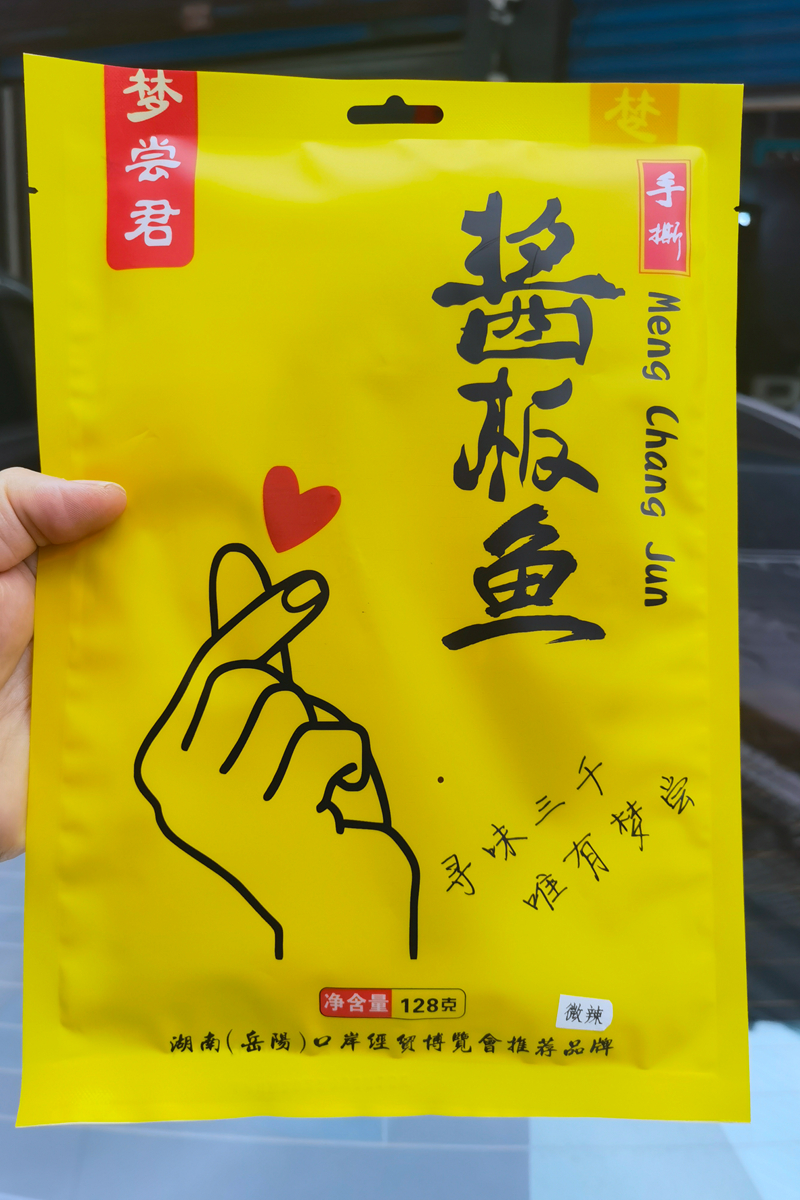 梦尝君
梦
手撕
酱板鱼
Meng Chang Jun
寻味三千
唯有梦尝
净含量 128克
微辣
湖南(岳陽)口岸經贸博覽會推荐品牌